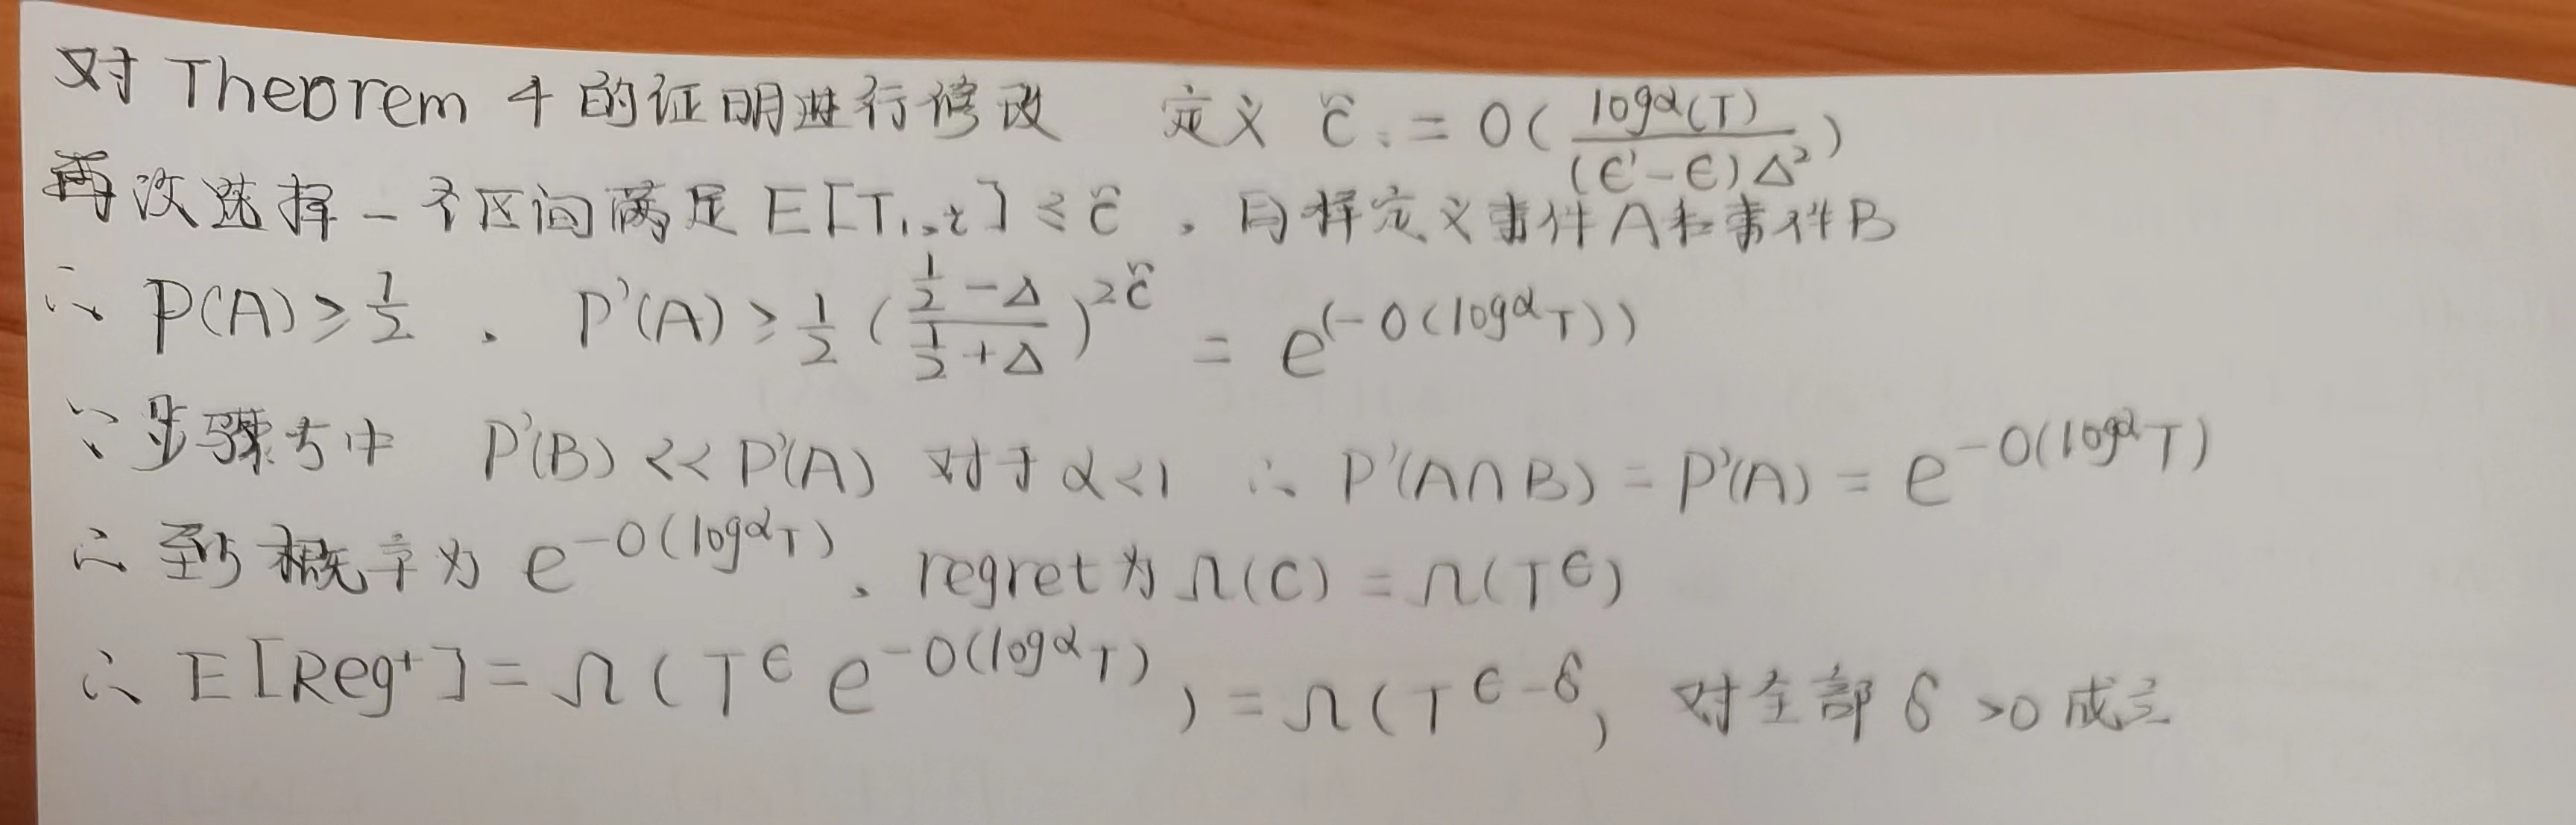 对 Theorem 4 的证明进行修改 定义 C̃ := O( log^α(T) / (ϵ'-ϵ)Δ² )
再次选择一个区间满足 E[T₁,t] ≤ C̃ , 同样定义事件A和事件B
∴ P(A) ≥ 1/2 , P'(A) ≥ 1/2 ( (1/2 - Δ) / (1/2 + Δ) )^{2C̃} = e^{(-O(log^α T))}
∵ 步骤5中 P'(B) << P'(A) 对于 α<1 ∴ P'(A∩B) = P'(A) = e^{-O(log^α T)}
∴ 到概率为 e^{-O(log^α T)} , regret为 Ω(C) = Ω(T^ϵ)
∴ E[Reg⁺] = Ω( T^ϵ e^{-O(log^α T)} ) = Ω( T^{ϵ-δ} ) 对全部 δ >0 成立